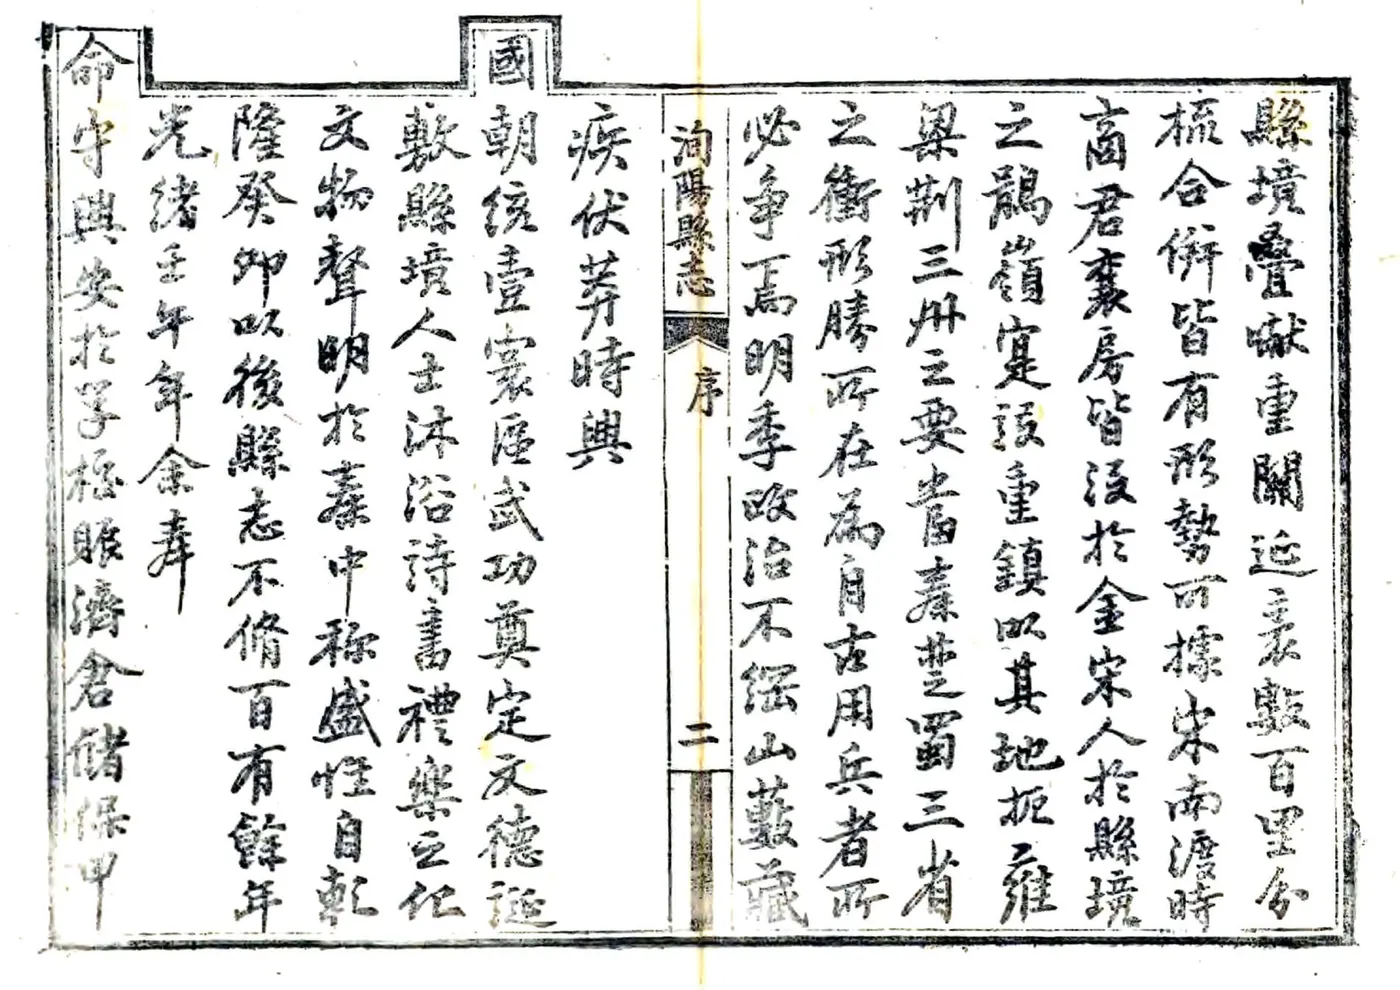 縣境疊巘重關延袤數百里分
梳合併皆有形勢可據宋南渡時
商君襄房皆沒於金宋人於縣境
之鶻嶺寔設重鎮以其地扼雍
梁荆三州之要當秦楚蜀三省
之衝形勝所在為自古用兵者所
必爭焉明季政治不綱山藪藏
洵陽縣志
序
二
疾伏莽時興
國朝統壹寰區武功奠定文德誕
敷縣境人士沐浴詩書禮樂之化
文物聲明於秦中称盛惟自乾
隆癸卯以後縣志不脩百有餘年
光緒壬午年余奉
命守興安於學校賑濟倉儲保甲